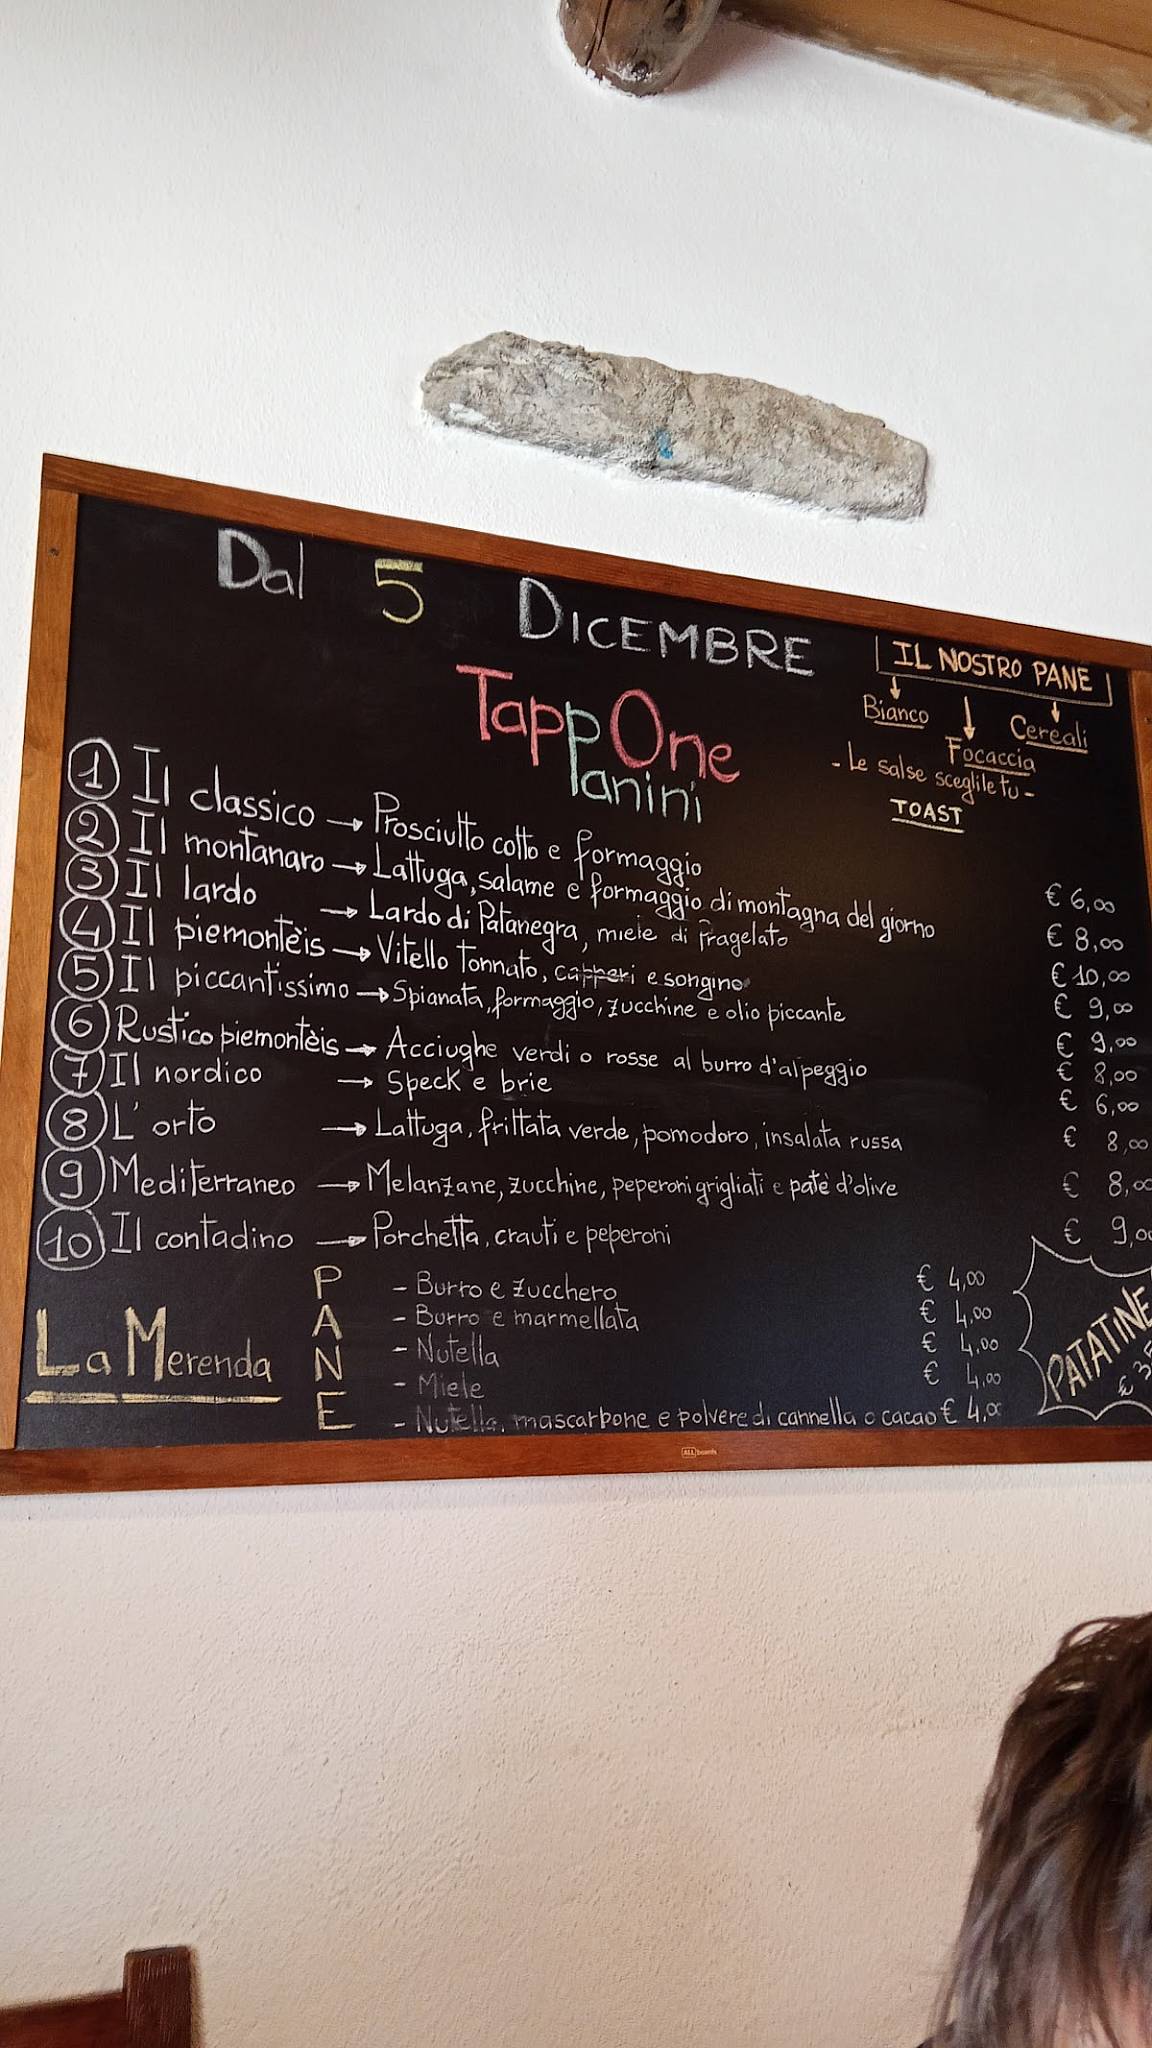 Dal 5 DICEMBRE
TappOne
Panini
IL NOSTRO PANE
Bianco Focaccia Cereali
- Le salse sceglile tu -
TOAST
1 Il classico → Prosciutto cotto e formaggio € 6,00
2 Il montanaro → Lattuga, salame e formaggio di montagna del giorno € 8,00
3 Il lardo → Lardo di Patanegra, miele di Fragelato € 10,00
4 Il piemontèis → Vitello Tonnato, capperi e songino € 9,00
5 Il piccantissimo → Spianata, formaggio, zucchine e olio piccante € 9,00
6 Rustico piemontèis → Acciughe verdi o rosse al burro d'alpeggio € 8,00
7 Il nordico → Speck e brie € 6,00
8 L'orto → Lattuga, frittata verde, pomodoro, insalata russa € 8,00
9 Mediterraneo → Melanzane, zucchine, peperoni grigliati e patè d'olive € 8,00
10 Il contadino → Porchetta, crauti e peperoni € 9,00
La Merenda
PANE
- Burro e zucchero € 4,00
- Burro e marmellata € 4,00
- Nutella € 4,00
- Miele € 4,00
- Nutella, mascarpone e polvere di cannella o cacao € 4,00
PATATINE
ALL boards